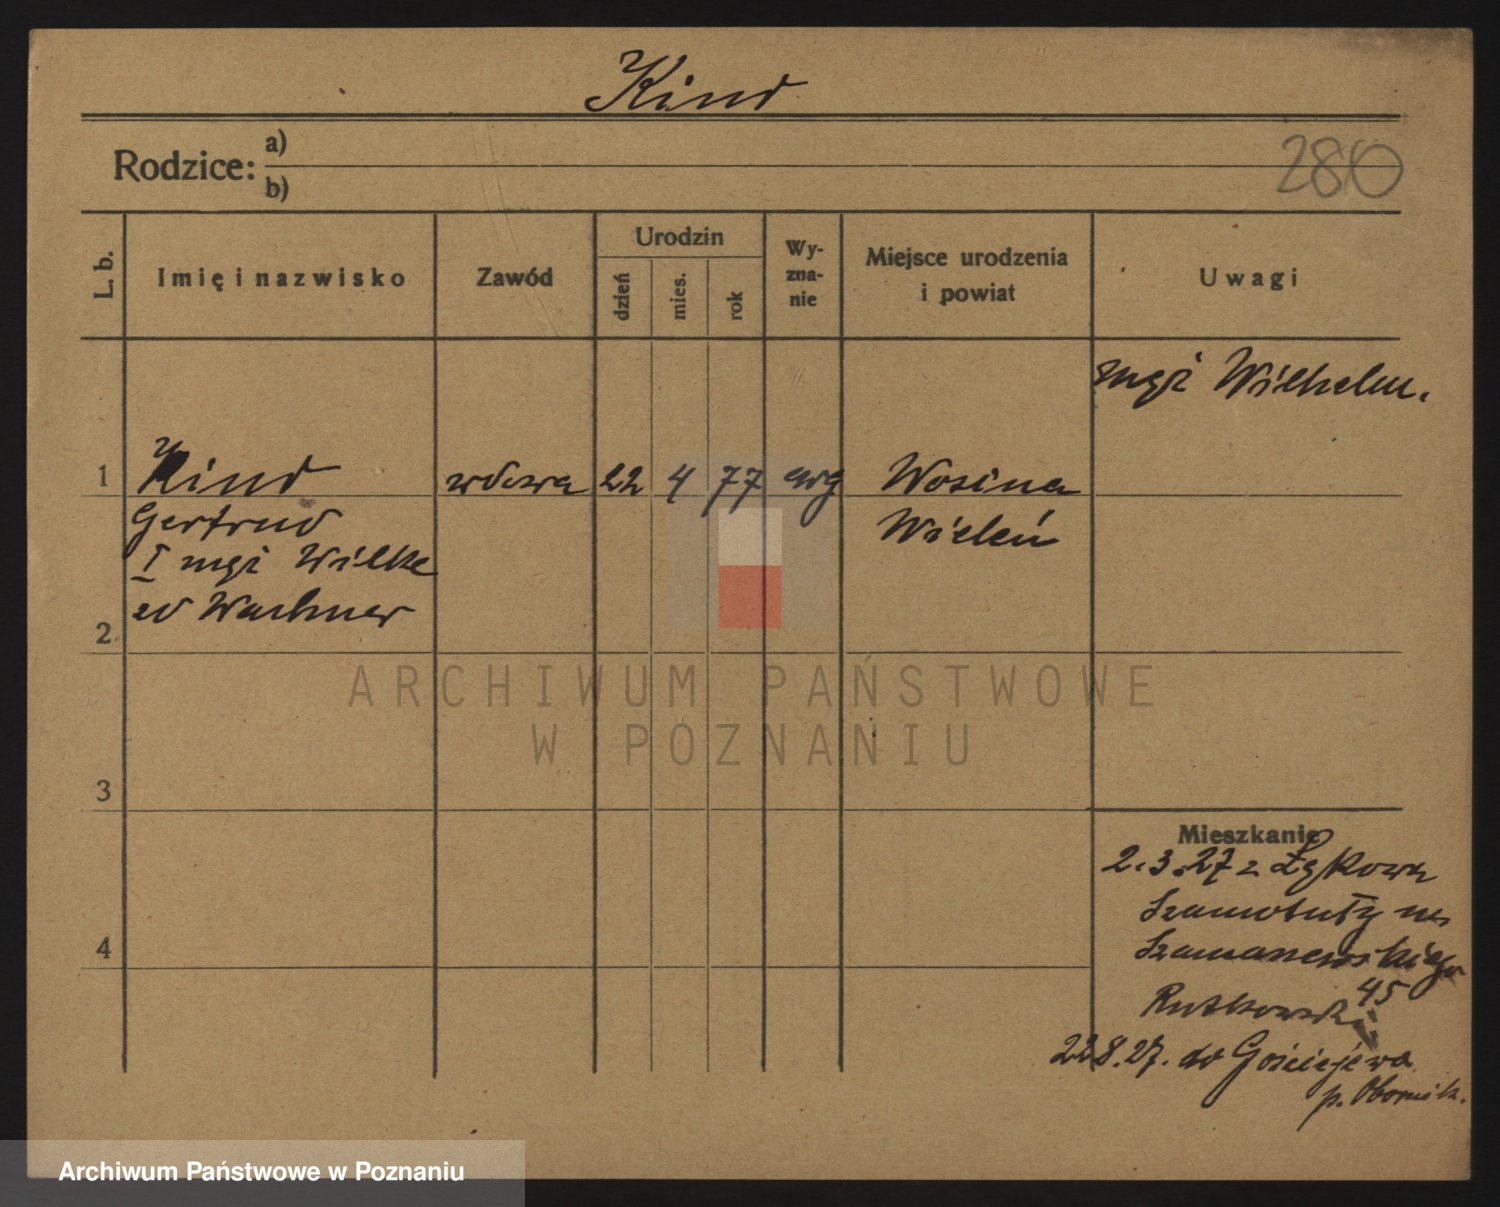 Kind
Rodzice: a)
b)
280
L. b.
Imię i nazwisko
Zawód
Urodzin
dzień
mies.
rok
Wy-
zna-
nie
Miejsce urodzenia
i powiat
Uwagi
mąż Wilhelm.
1 Kind wdowa 22 4 77 ewg Wosina
Gertrud Wieleń
I mąż Wilke
zd Wachner
2
3
4
ARCHIWUM PAŃSTWOWE
W POZNANIU
Mieszkanie
2.3.27 z
Szamotuły
45
Rutkowski
22.8.27. do Gościejewa
p. Obornik.
Archiwum Państwowe w Poznaniu